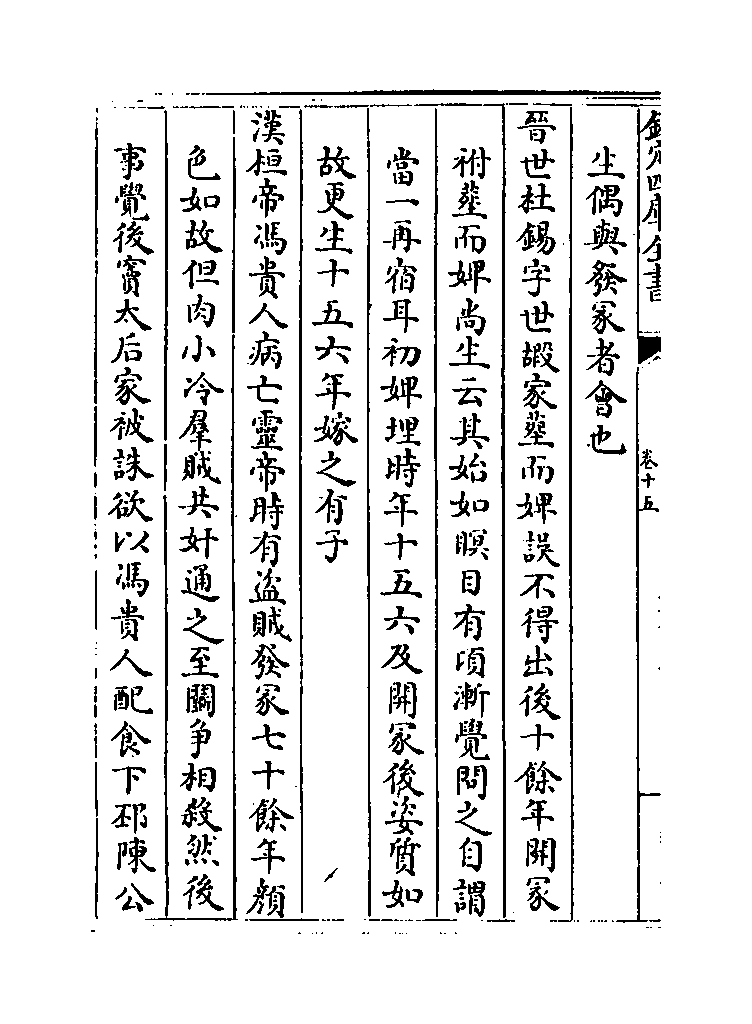 欽定四庫全書
卷十五
生偶與發冢者會也
晉世杜錫字世嘏家葬而婢誤不得出後十餘年開冢
祔葬而婢尚生云其始如瞑目有頃漸覺問之自謂
當一再宿耳初婢埋時年十五六及開冢後姿質如
故更生十五六年嫁之有子
漢桓帝馮貴人病亡靈帝時有盜賊發冢七十餘年顔
色如故但肉小冷羣賊共奸通之至鬭争相殺然後
事覺後竇太后家被誅欲以馮貴人配食下邳陳公